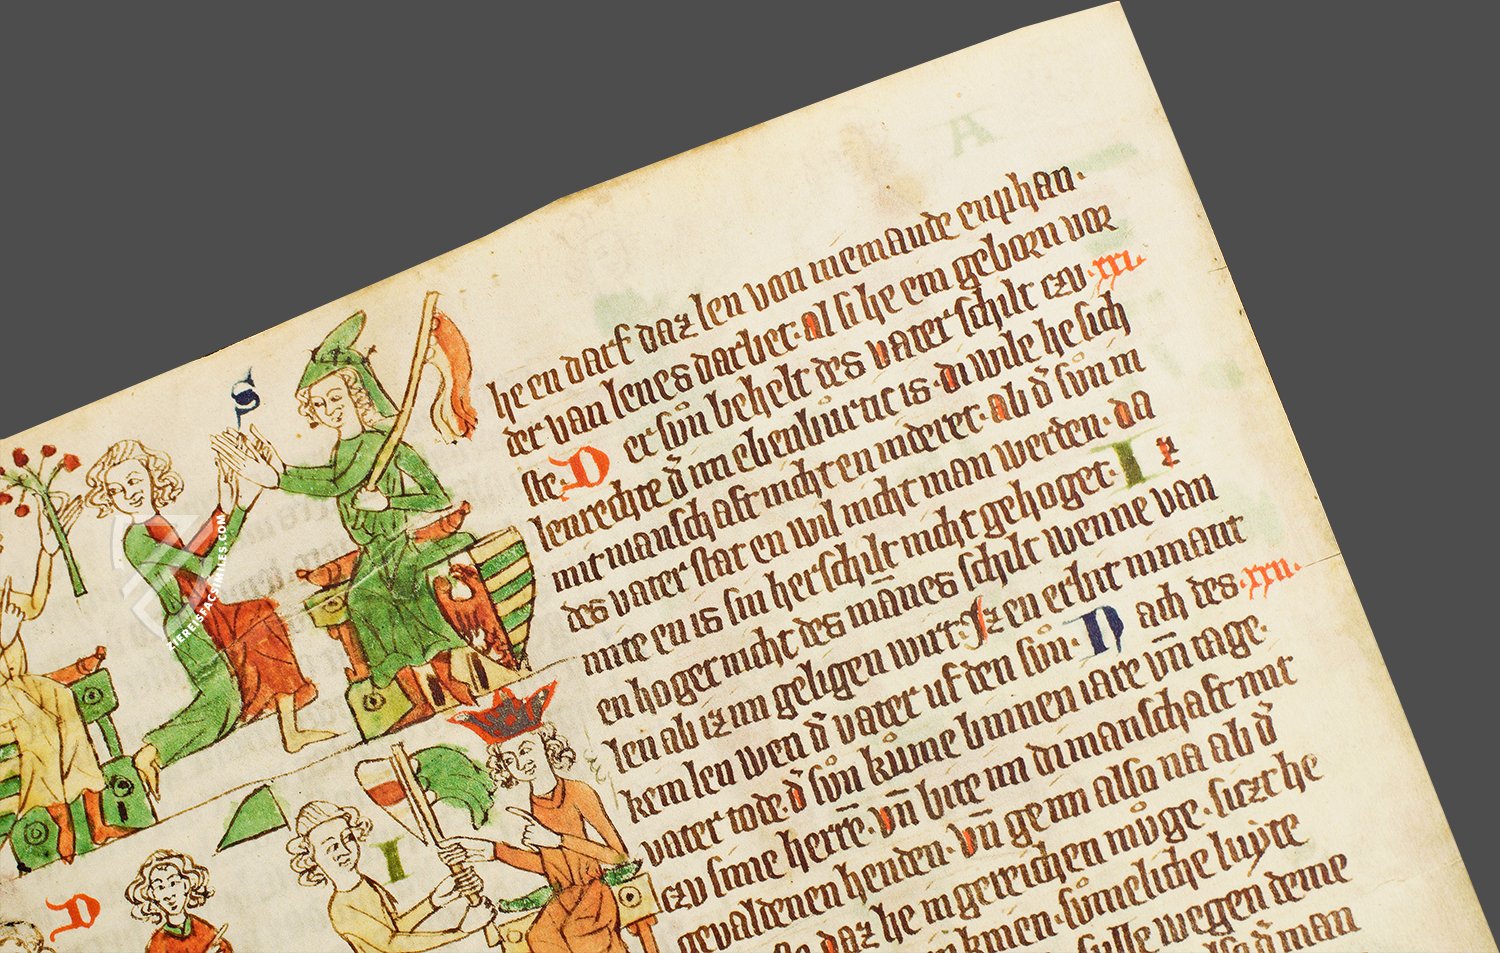 S
he en darf daz len von niemande enphan.
der van lenes darbet. al si he ein geborn vor
ste. D er sůn behelt des vater schilt czu .xxi.
lenrechte d' im ebenburtic is. di wile he sich
mit manschaft nicht en inderet. ab d' sůn in
des vater stat en wil nicht man werden. da
mite en is sin herschilt nicht gehoget. I z
en hoget nicht des mānes schilt wenne van
len ab iz im geligen wirt. Iz en erbit nimant
kein len wen d' vater uf den sůn. N ach des .xxii.
vater tode d' sůn kume binnen iare vn̄ tage.
czu sime herrē. vn̄ bite im di manschaft mit
gevaldenen henden. vn̄ ge im also na ab d'
daz he in gereichen můge. sitzt he
sůmeliche luyte
sulle wegen deme
man
I
D
ZIEREISFACSIMILES.COM